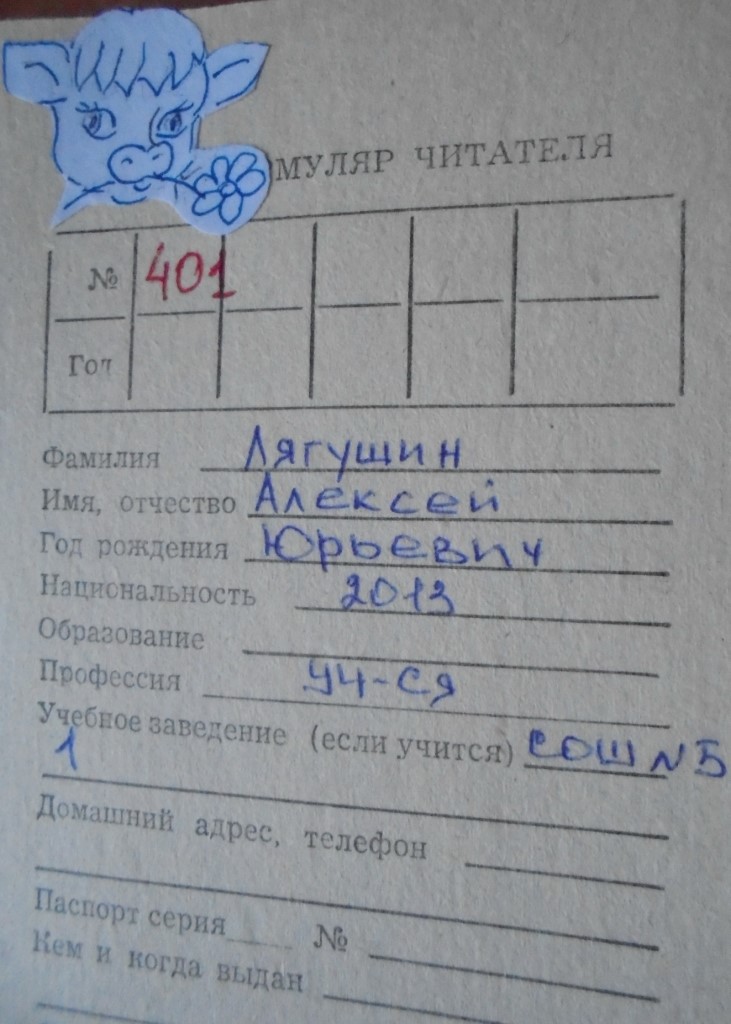 МУЛЯР ЧИТАТЕЛЯ
№ 401
Год
Фамилия Лягушин
Имя, отчество Алексей
Год рождения Юрьевич
Национальность 2013
Образование
Профессия уч-ся
Учебное заведение (если учится) СОШ №5
1
Домашний адрес, телефон
Паспорт серия №
Кем и когда выдан